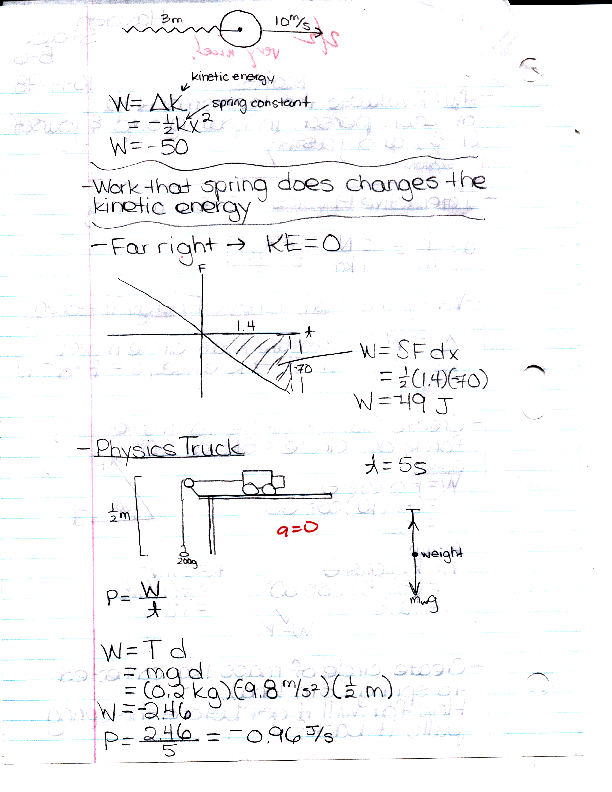 3m
10 m/s
kinetic energy
W = ΔK
spring constant
= -½kx²
W = -50
- Work that spring does changes the
kinetic energy
- Far right → KE = 0
F
1.4
t
-70
W = SFdx
= ½(1.4)(-70)
W = -49 J
- Physics Truck
t = 5s
½m
a=0
200g
T
weight
mwg
P = W/t
W = T d
= mgd
= (0.2 kg)(9.8 m/s²)(½ m)
W = -2.46
P = 2.46/5 = -0.96 J/s